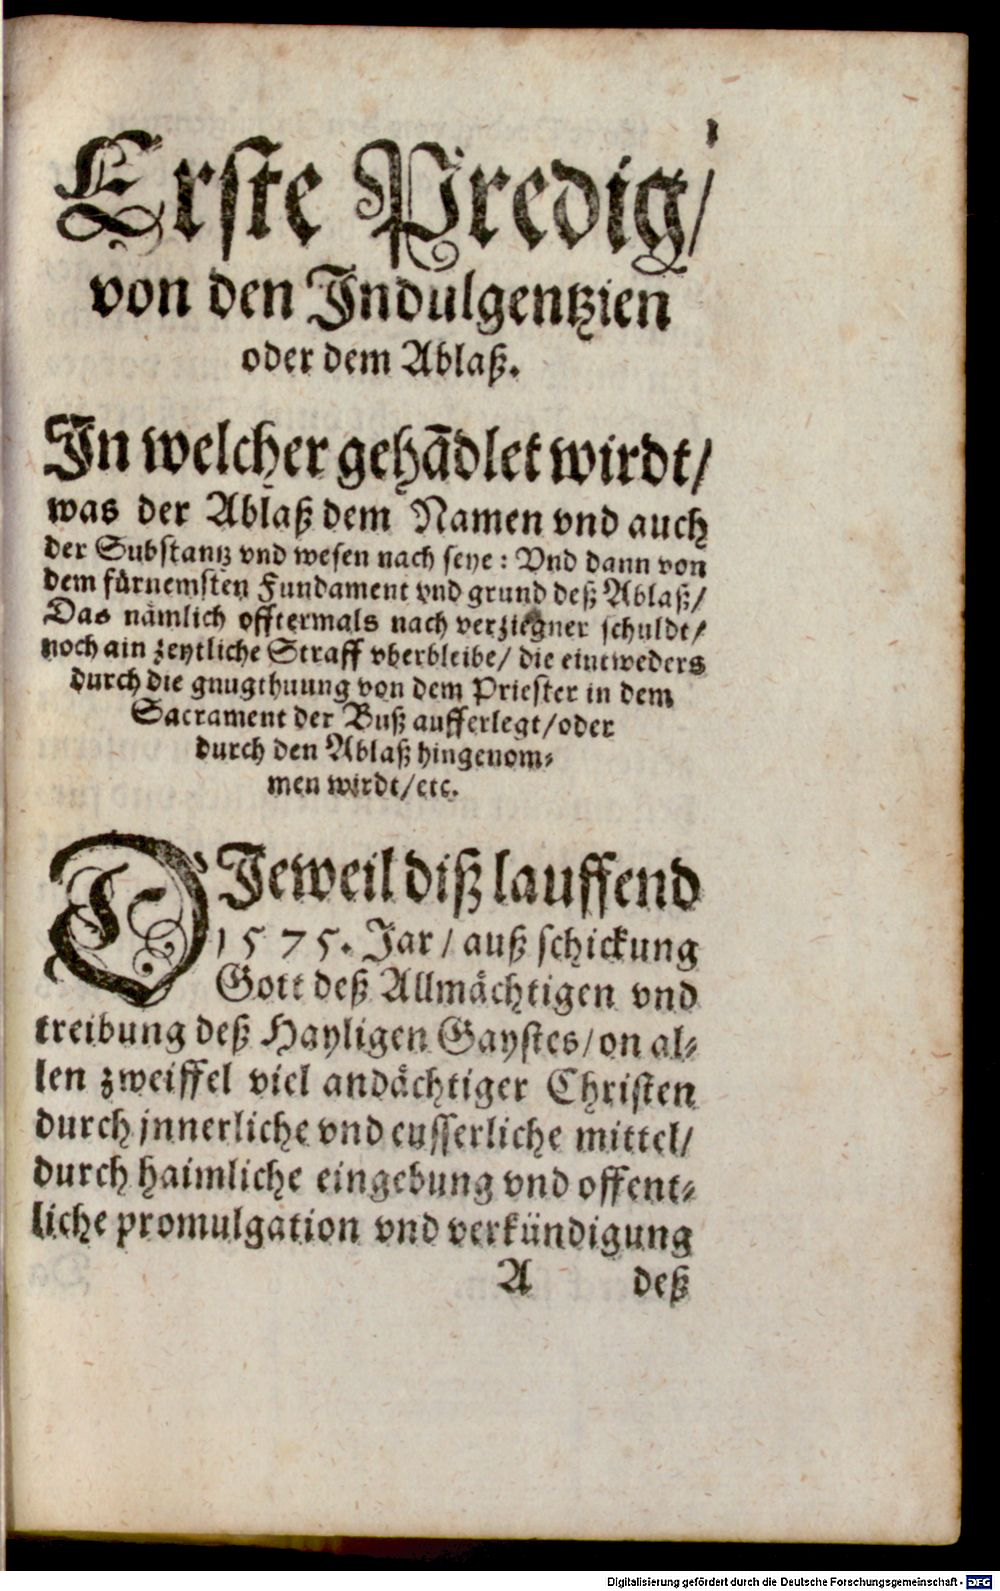 1
Erste Predig/
von den Indulgentzien
oder dem Ablaß.
In welcher gehãdlet wirdt/
was der Ablaß dem Namen vnd auch
der Substantz vnd wesen nach seye: Vnd dann von
dem fürnemsten Fundament vnd grund deß Ablaß/
Das nämlich offtermals nach verziegner schuldt/
noch ain zeytliche Straff vberbleibe/ die eintweders
durch die gnugthuung von dem Priester in dem
Sacrament der Buß aufferlegt/oder
durch den Ablaß hingenom-
men wirdt/etc.
DJeweil diß lauffend
1575. Jar/ auß schickung
Gott deß Allmächtigen vnd
treibung deß Hayligen Gaystes/on al-
len zweiffel viel andächtiger Christen
durch jnnerliche vnd eusserliche mittel/
durch haimliche eingebung vnd offent-
liche promulgation vnd verkündigung
A deß
Digitalisierung gefördert durch die Deutsche Forschungsgemeinschaft - DFG